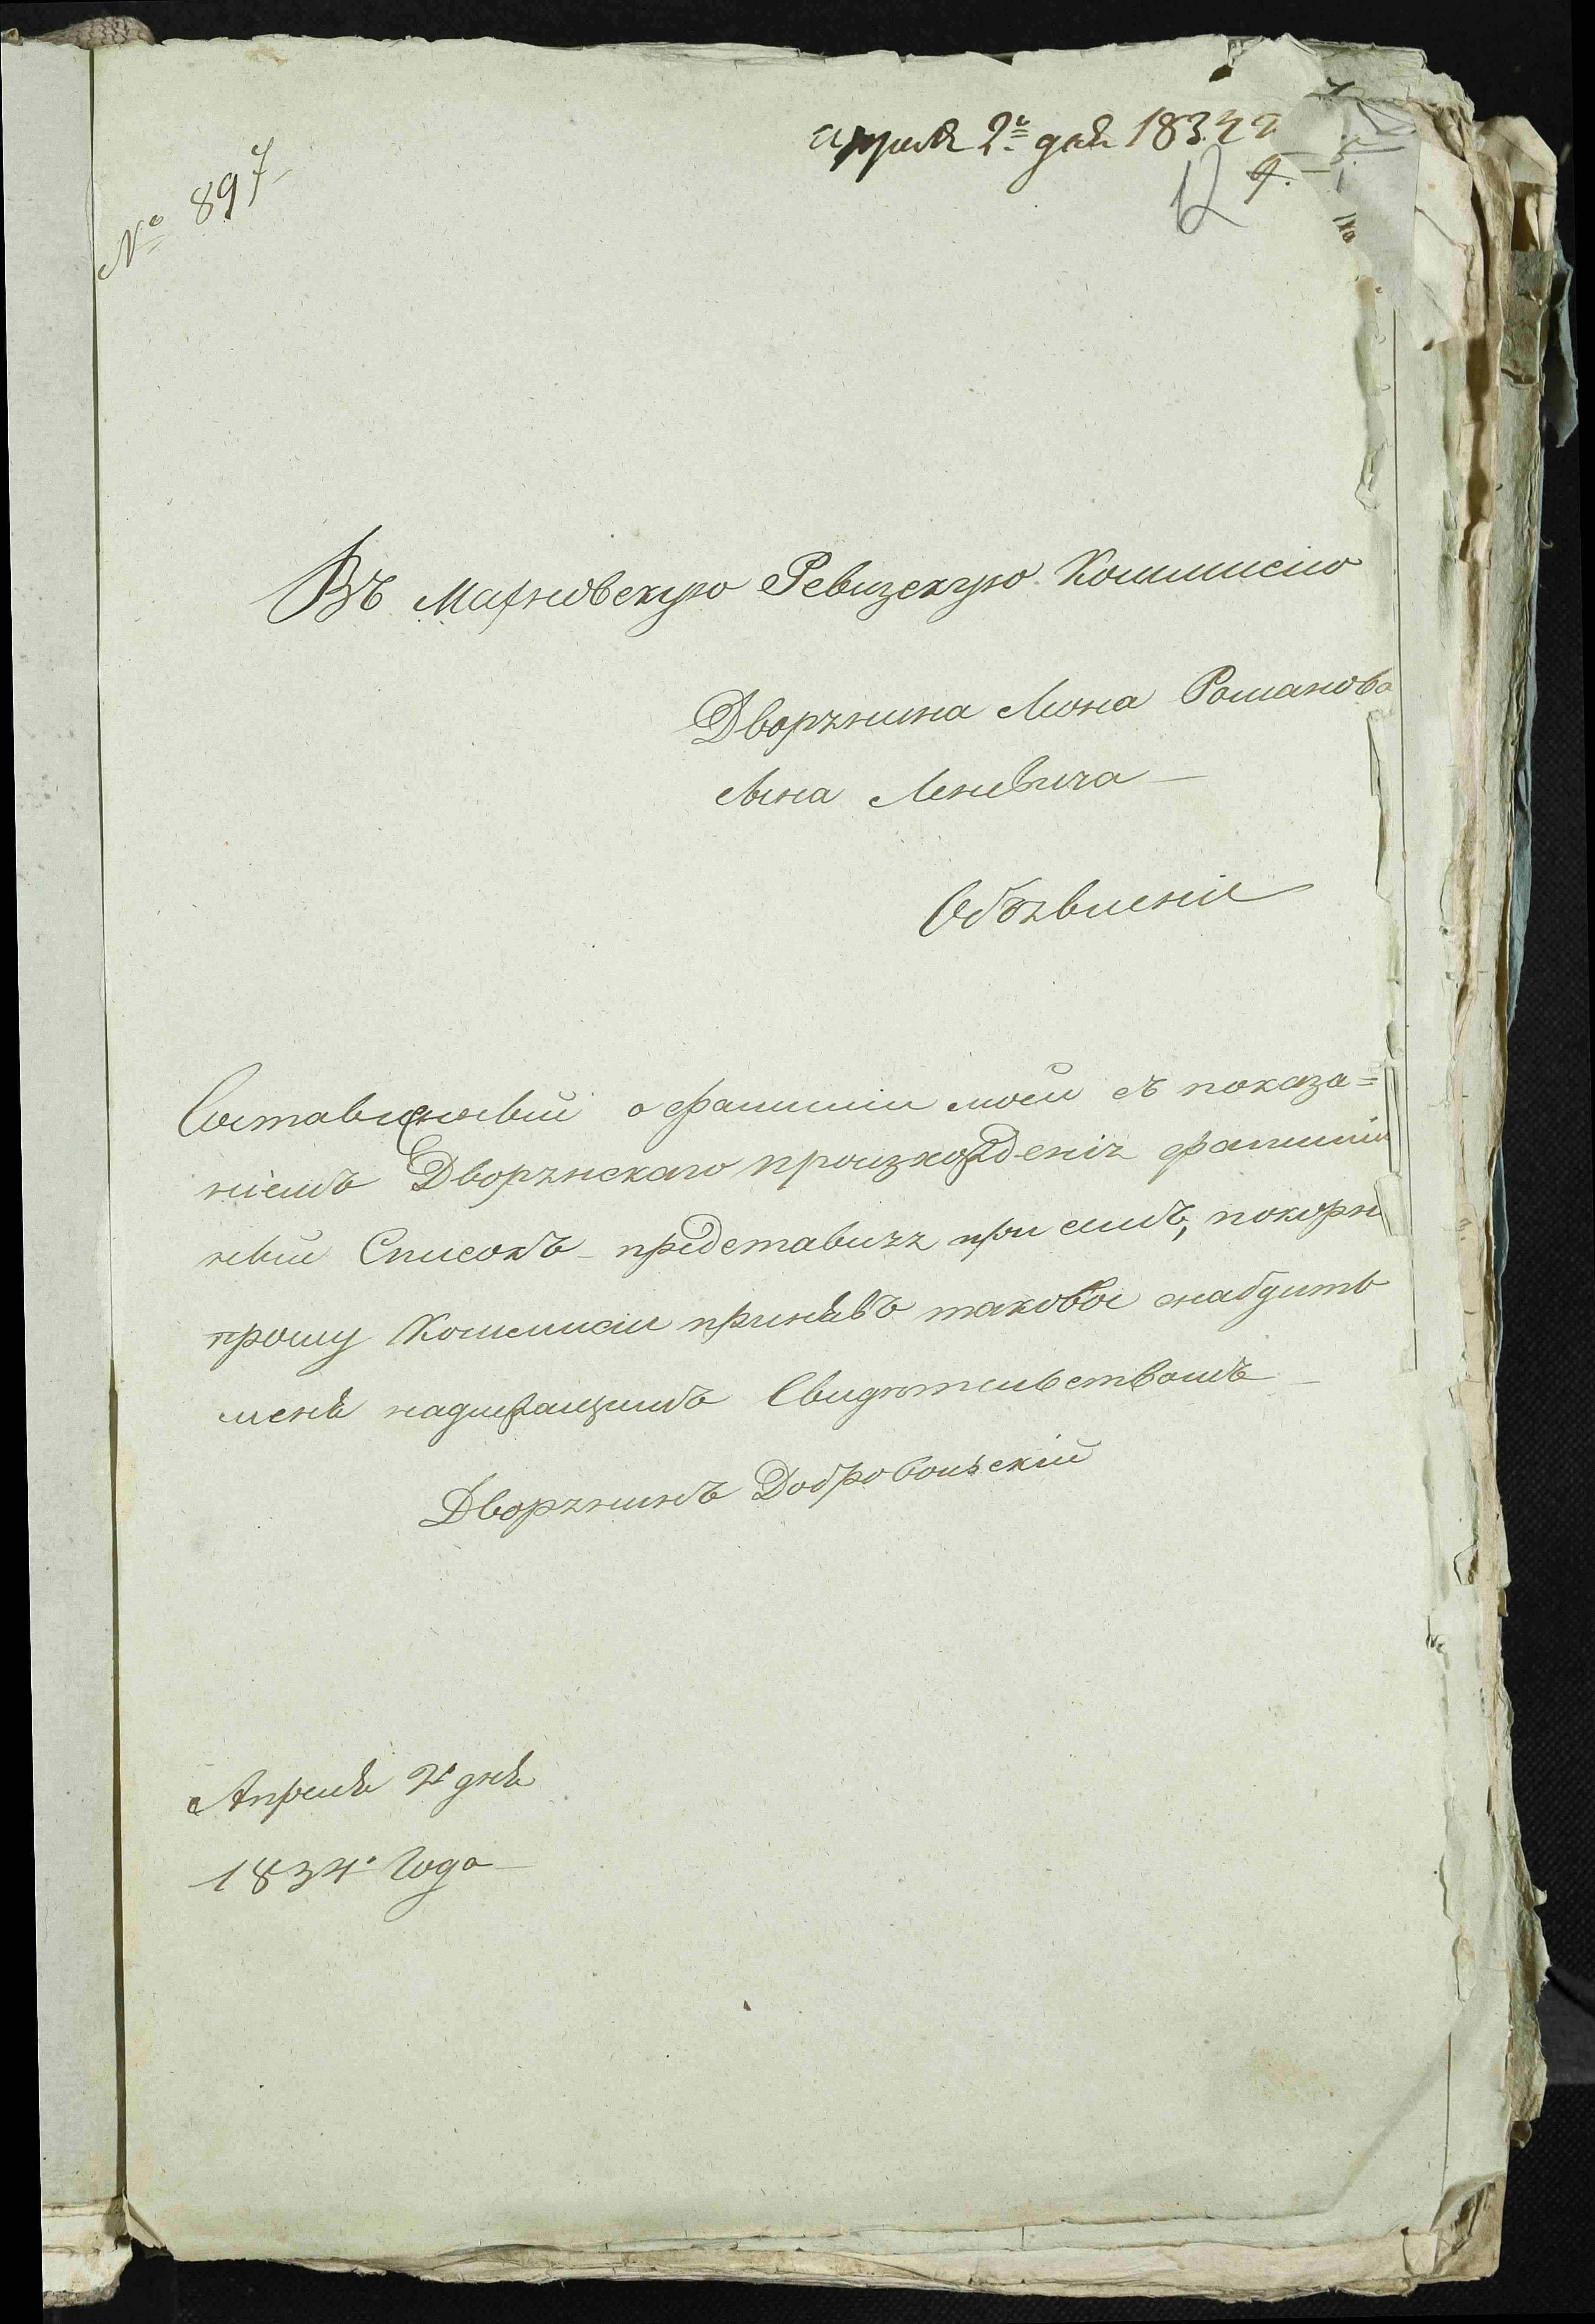 № 897
апреля 2г дня 1834 г
12 9.
Въ Махновскую Ревизскую Коммисию
Дворянина Леона Романова
сына Леневича
Объявление
Составленный о фамилии моей съ показа=
ніемъ Дворянскаго произхожденія фамилій
ный Списокъ представляя при семъ, покорно
прошу Коммисіи принявъ таковое снабдить
меня надлежащимъ Свидѣтельствомъ
Дворянинъ Добровольскій
Апреля 2г дня
1834г Года